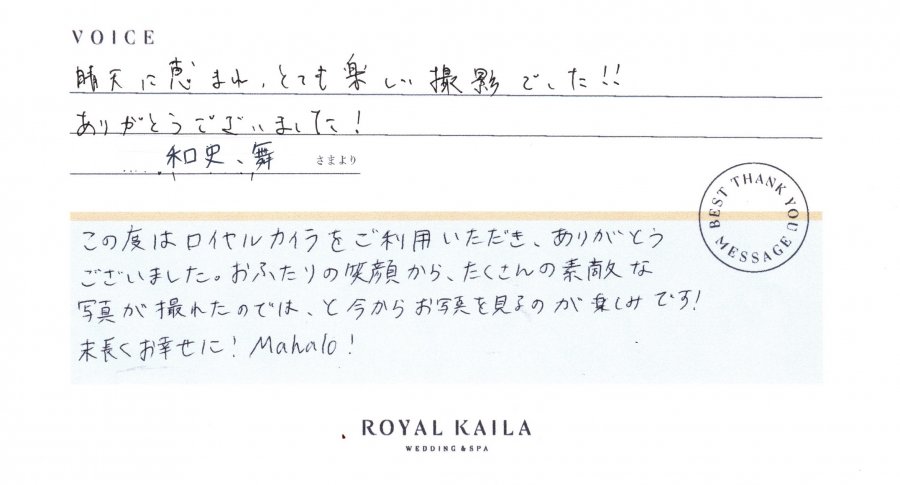 VOICE
晴天に恵まれ、とても楽しい撮影でした!!
ありがとうございました!
和史、舞 さまより
BEST THANK YOU MESSAGE
この度はロイヤルカイラをご利用いただき、ありがとう
ございました。おふたりの笑顔から、たくさんの素敵な
写真が撮れたのでは、と今からお写真を見るのが楽しみです!
末長くお幸せに! Mahalo!
ROYAL KAILA
WEDDING & SPA